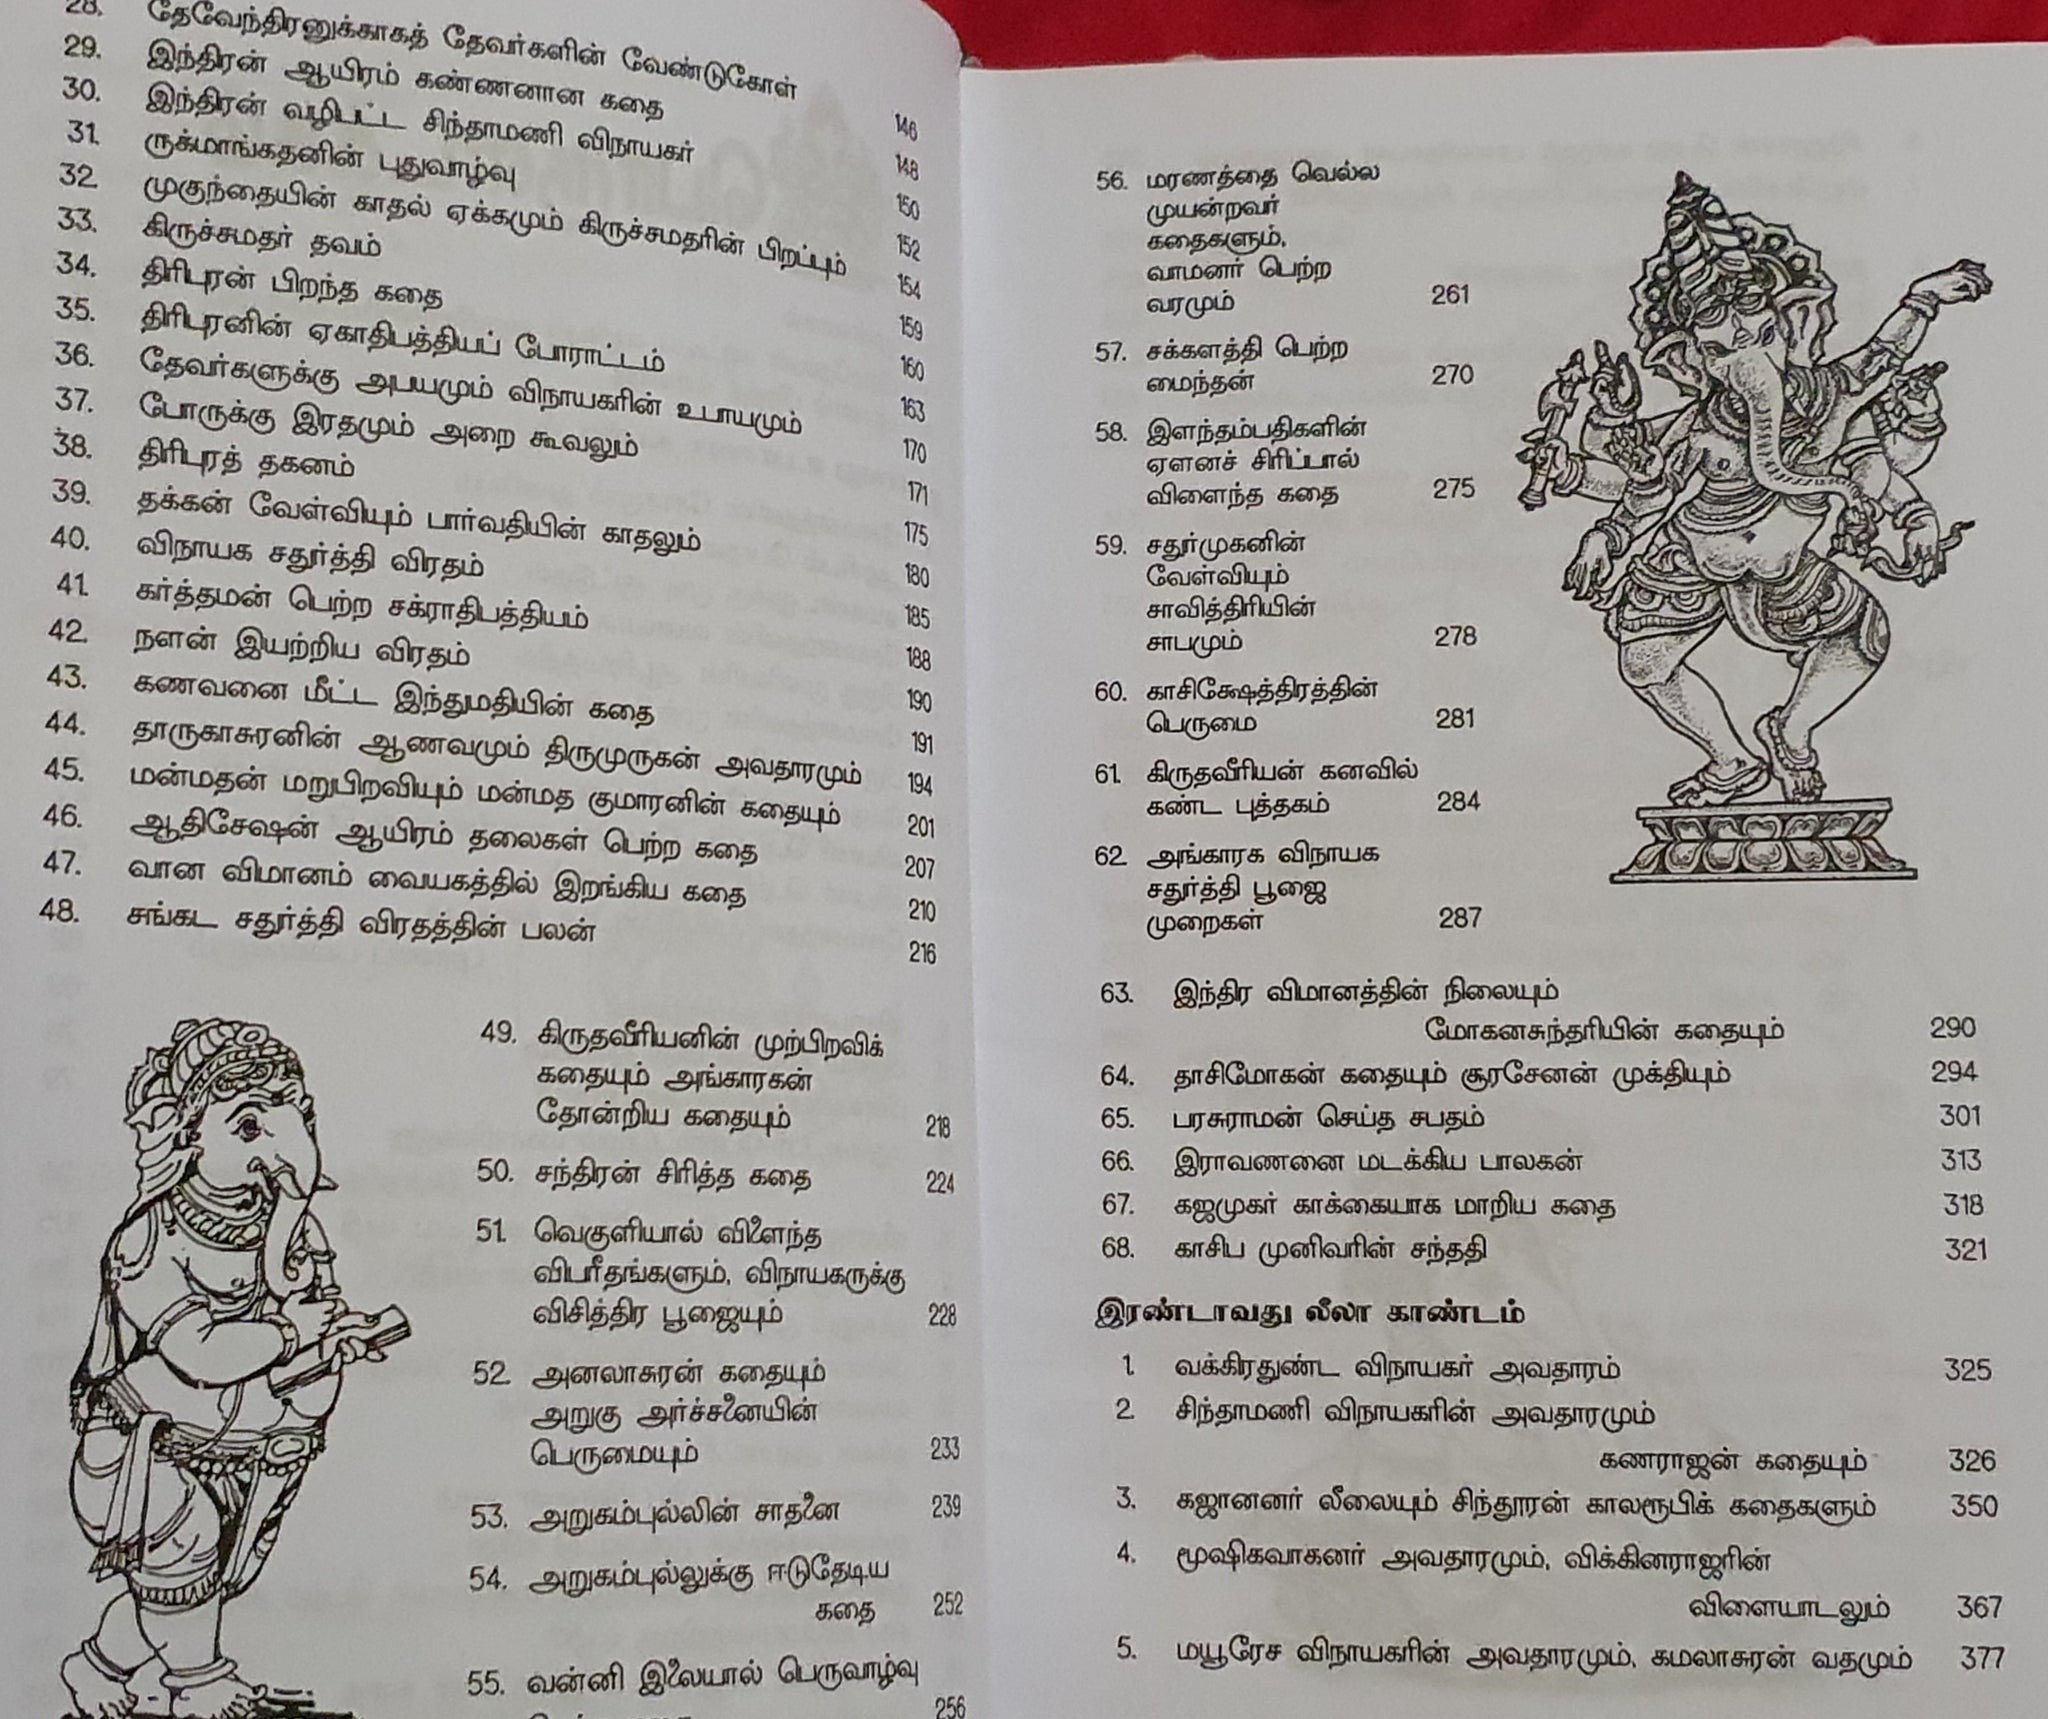 28. தேவேந்திரனுக்காகத் தேவர்களின் வேண்டுகோள் 146
29. இந்திரன் ஆயிரம் கண்ணனான கதை 148
30. இந்திரன் வழிபட்ட சிந்தாமணி விநாயகர் 150
31. ருக்மாங்கதனின் புதுவாழ்வு 152
32. முகுந்தையின் காதல் ஏக்கமும் கிருச்சமதரின் பிறப்பும் 154
33. கிருச்சமதர் தவம் 159
34. திரிபுரன் பிறந்த கதை 160
35. திரிபுரனின் ஏகாதிபத்தியப் போராட்டம் 163
36. தேவர்களுக்கு அபயமும் விநாயகரின் உபாயமும் 170
37. போருக்கு இரதமும் அறை கூவலும் 171
38. திரிபுரத் தகனம் 175
39. தக்கன் வேள்வியும் பார்வதியின் காதலும் 180
40. விநாயக சதுர்த்தி விரதம் 185
41. கர்த்தமன் பெற்ற சக்ராதிபத்தியம் 188
42. நளன் இயற்றிய விரதம் 190
43. கணவனை மீட்ட இந்துமதியின் கதை 191
44. தாருகாசுரனின் ஆணவமும் திருமுருகன் அவதாரமும் 194
45. மன்மதன் மறுபிறவியும் மன்மத குமாரனின் கதையும் 201
46. ஆதிசேஷன் ஆயிரம் தலைகள் பெற்ற கதை 207
47. வான விமானம் வையகத்தில் இறங்கிய கதை 210
48. சங்கட சதுர்த்தி விரதத்தின் பலன் 216
49. கிருதவீரியனின் முற்பிறவிக்
கதையும் அங்காரகன்
தோன்றிய கதையும் 218
50. சந்திரன் சிரித்த கதை 224
51. வெகுளியால் விளைந்த
விபரீதங்களும், விநாயகருக்கு
விசித்திர பூஜையும் 228
52. அனலாசுரன் கதையும்
அறுகு அர்ச்சனையின்
பெருமையும் 233
53. அறுகம்புல்லின் சாதனை 239
54. அறுகம்புல்லுக்கு ஈடுதேடிய
கதை 252
55. வன்னி இலையால் பெருவாழ்வு
256
56. மரணத்தை வெல்ல
முயன்றவர்
கதைகளும்,
வாமனர் பெற்ற
வரமும் 261
57. சக்களத்தி பெற்ற
மைந்தன் 270
58. இளந்தம்பதிகளின்
ஏளனச் சிரிப்பால்
விளைந்த கதை 275
59. சதுர்முகனின்
வேள்வியும்
சாவித்திரியின்
சாபமும் 278
60. காசிக்ஷேத்திரத்தின்
பெருமை 281
61. கிருதவீரியன் கனவில்
கண்ட புத்தகம் 284
62. அங்காரக விநாயக
சதுர்த்தி பூஜை
முறைகள் 287
63. இந்திர விமானத்தின் நிலையும்
மோகனசுந்தரியின் கதையும் 290
64. தாசிமோகன் கதையும் சூரசேனன் முக்தியும் 294
65. பரசுராமன் செய்த சபதம் 301
66. இராவணனை மடக்கிய பாலகன் 313
67. கஜமுகர் காக்கையாக மாறிய கதை 318
68. காசிப முனிவரின் சந்ததி 321
இரண்டாவது லீலா காண்டம்
1. வக்கிரதுண்ட விநாயகர் அவதாரம் 325
2. சிந்தாமணி விநாயகரின் அவதாரமும்
கணராஜன் கதையும் 326
3. கஜானனர் லீலையும் சிந்தூரன் காலரூபிக் கதைகளும் 350
4. மூஷிகவாகனர் அவதாரமும், விக்கினராஜரின்
விளையாடலும் 367
5. மயூரேச விநாயகரின் அவதாரமும், கமலாசுரன் வதமும் 377